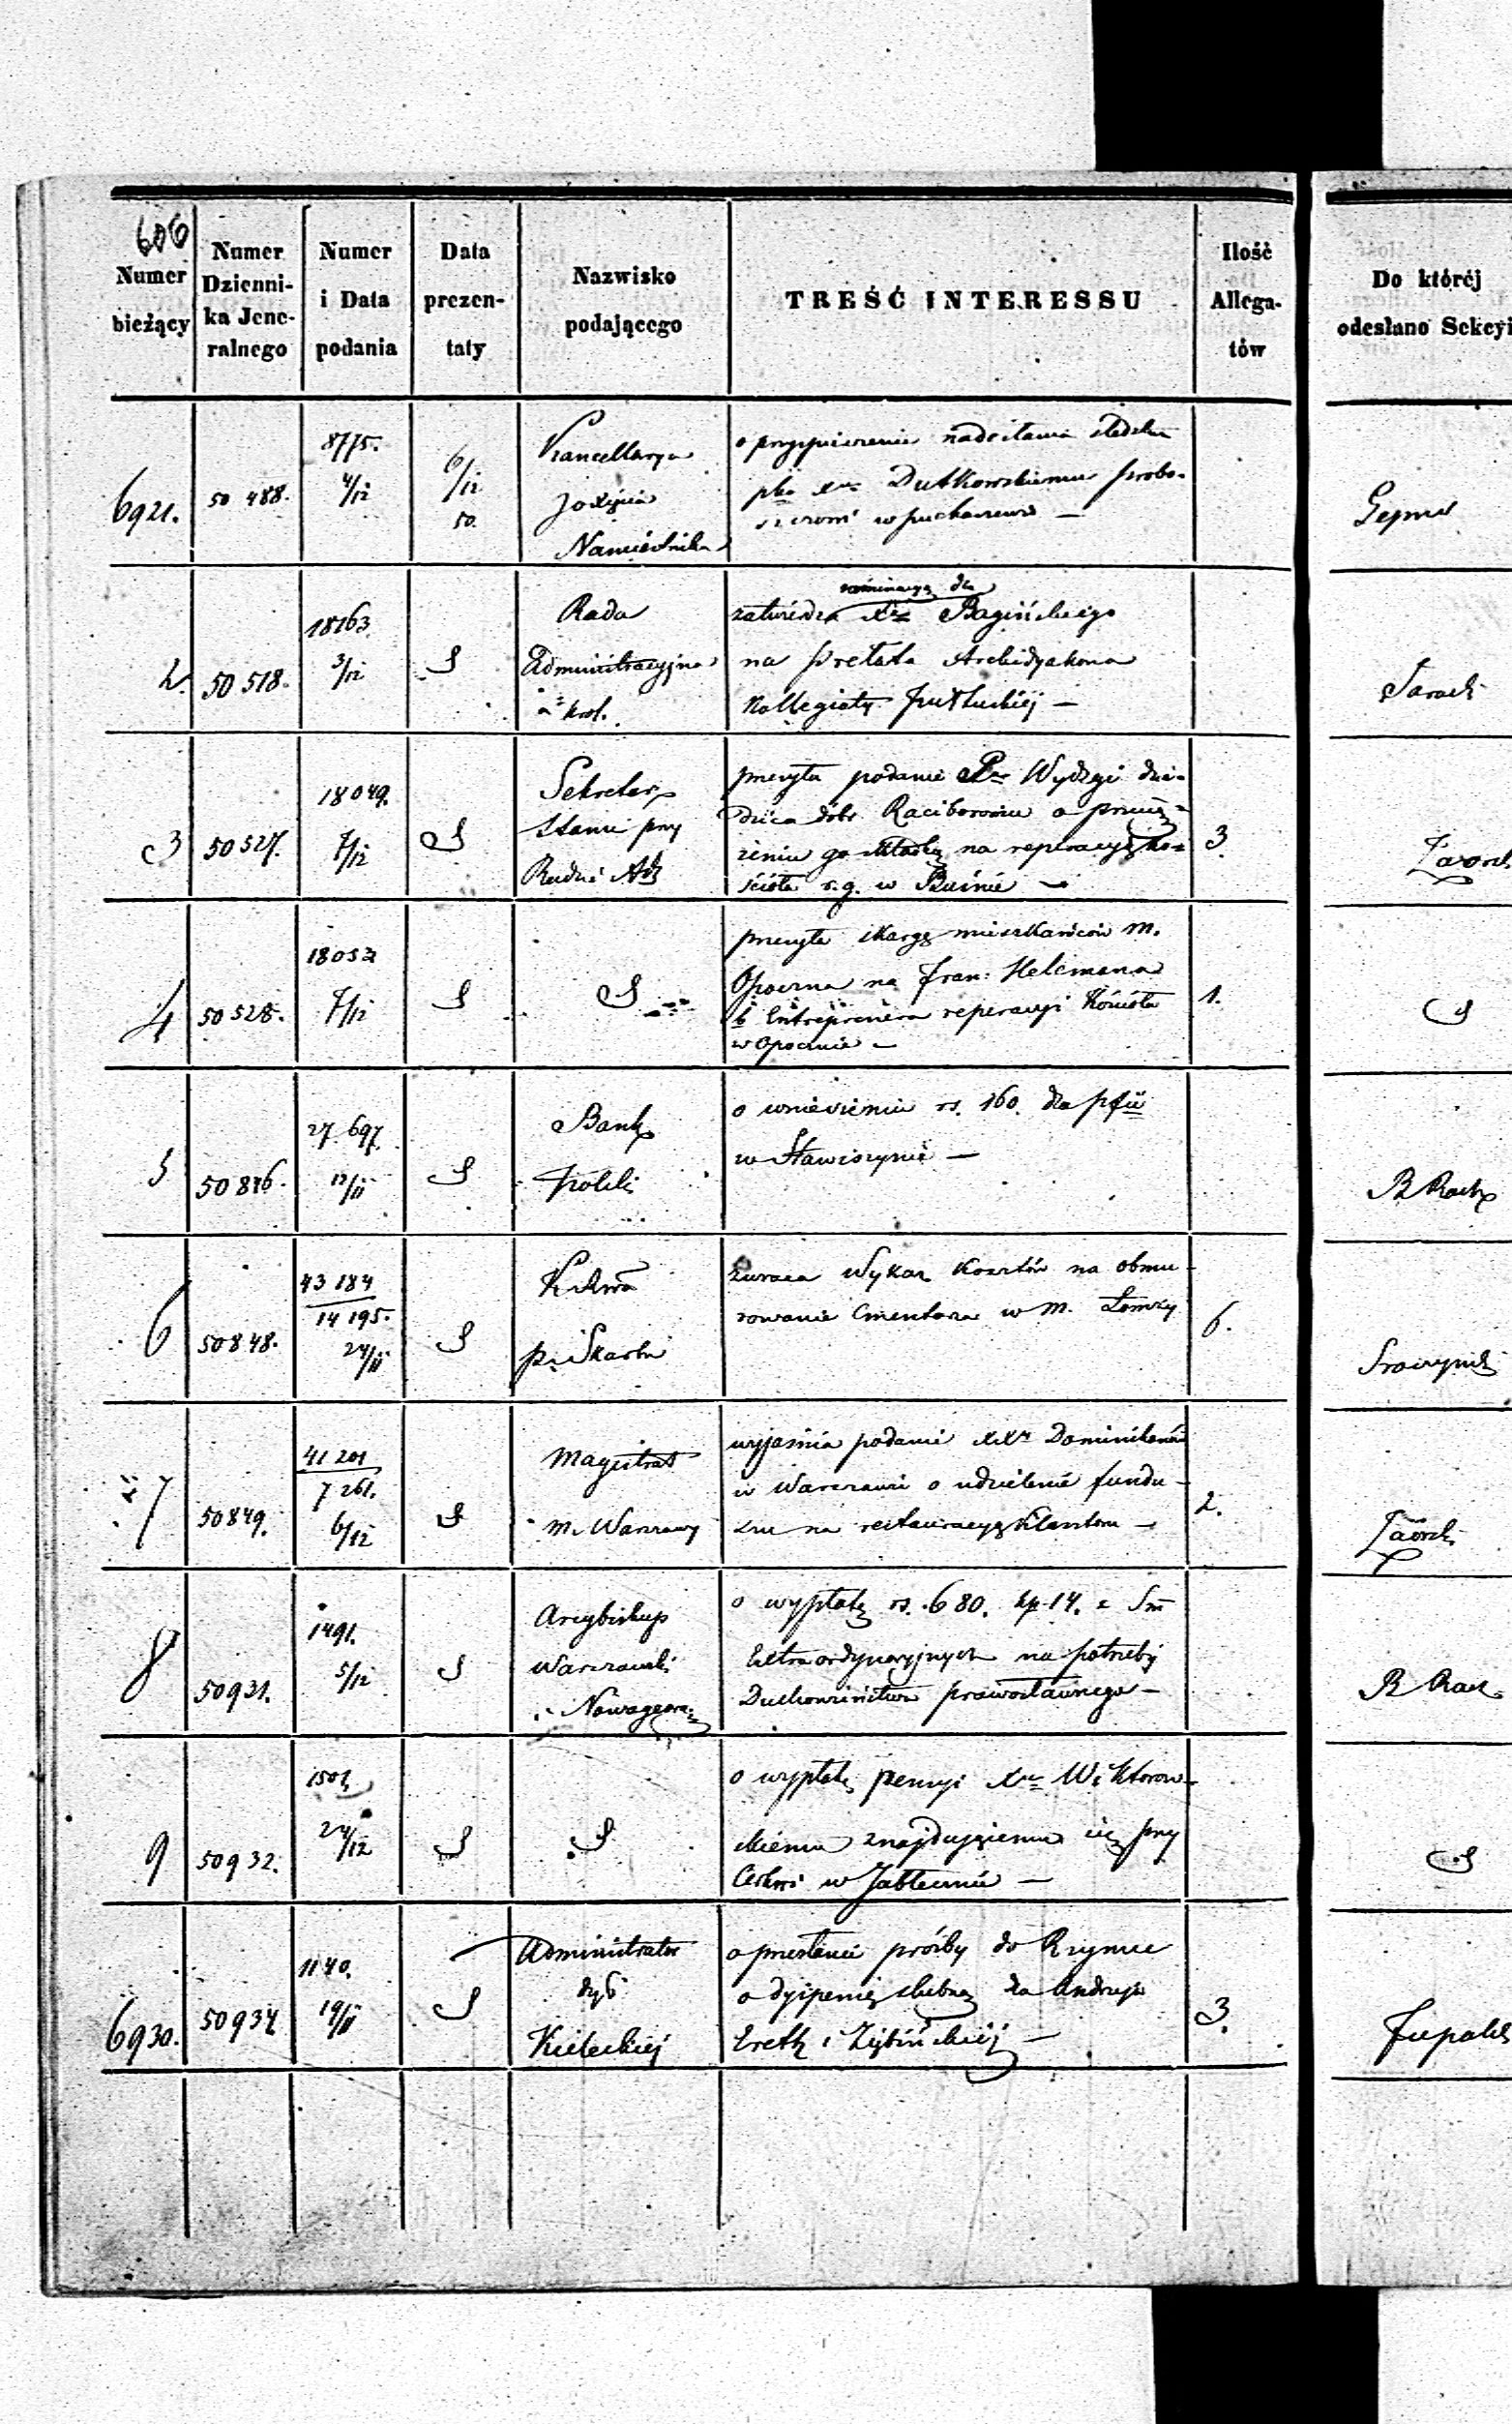 606
Numer bieżący
Numer Dzienni- ka Jene- ralnego
Numer i Data podania
Data prezen- taty
Nazwisko podającego
TREŚĆ INTERESSU
Ilość Allega- tów
Do któréj odesłano Sekcyi
6921. 50 488. 8775. 4/12 6/12 50.
Kancellarya
Xięcia
Namiestnika
o przyspieszenie nadesłania
Xu Dutkowskiemu probo-
szczowi w
2. 50 518. 18163 3/12
Rada
Administracyjna
Król.
nominacyą dla
zatwierdza Xa Bagińskiego
na prełata Archidyakona
Kollegiaty Pułtuskiéj —
3 50 527. 18049. 7/12
Sekretarz
Stanu przy
Radzie Adm
przesyła podanie Pa Wydżgi dzie-
dzica dóbr Raciborowice o
go składką na reperacyę ko-
ścioła r. g. w Buśnie —
3.
4 50 528. 18052 7/12
przesyła skargę mieszkańców m.
Opoczna na Fran: Helcmana
b Entreprenera reperacyi Kościoła
w Opocznie —
1.
5 50 816. 27 697. 12/11
Bank
Polski
o wniesieniu rs. 160. dla pfii
w Stawiszynie —
B Rach
6 50848. 43 184 14 195. 24/11
Skarbu
zwraca Wykaz kosztów na obmu-
rowanie Cmentarza w m. Łomży
6.
7 50849. 41 201 7 261. 6/12
Magistrat
m. Warszawy
wyjaśnia podanie XXy Dominikanów
w Warszawie o udzielenie fundu-
szu na restauracyę Klasztoru —
2.
8 50931. 1491. 5/12
Arcybiskup
Warszawski
i Nowogeorg:
o wypłatę rs. 680. kp. 14. z Sm
Extraordynaryjnych na potrzeby
Duchowieństwa prawosławnego —
B Rach
9 50932. 1501 24/12
o wypłatę pensyi Xu Wiktorow-
skiemu znajdującemu się przy
Cerkwi w Jabłecznie —
6930. 50934 1140. 19/11
Administrator
dyc
Kieleckiéj
o przesłanie prośby do Rzymu
o dyspensę ślubną dla Andrzeja
3.